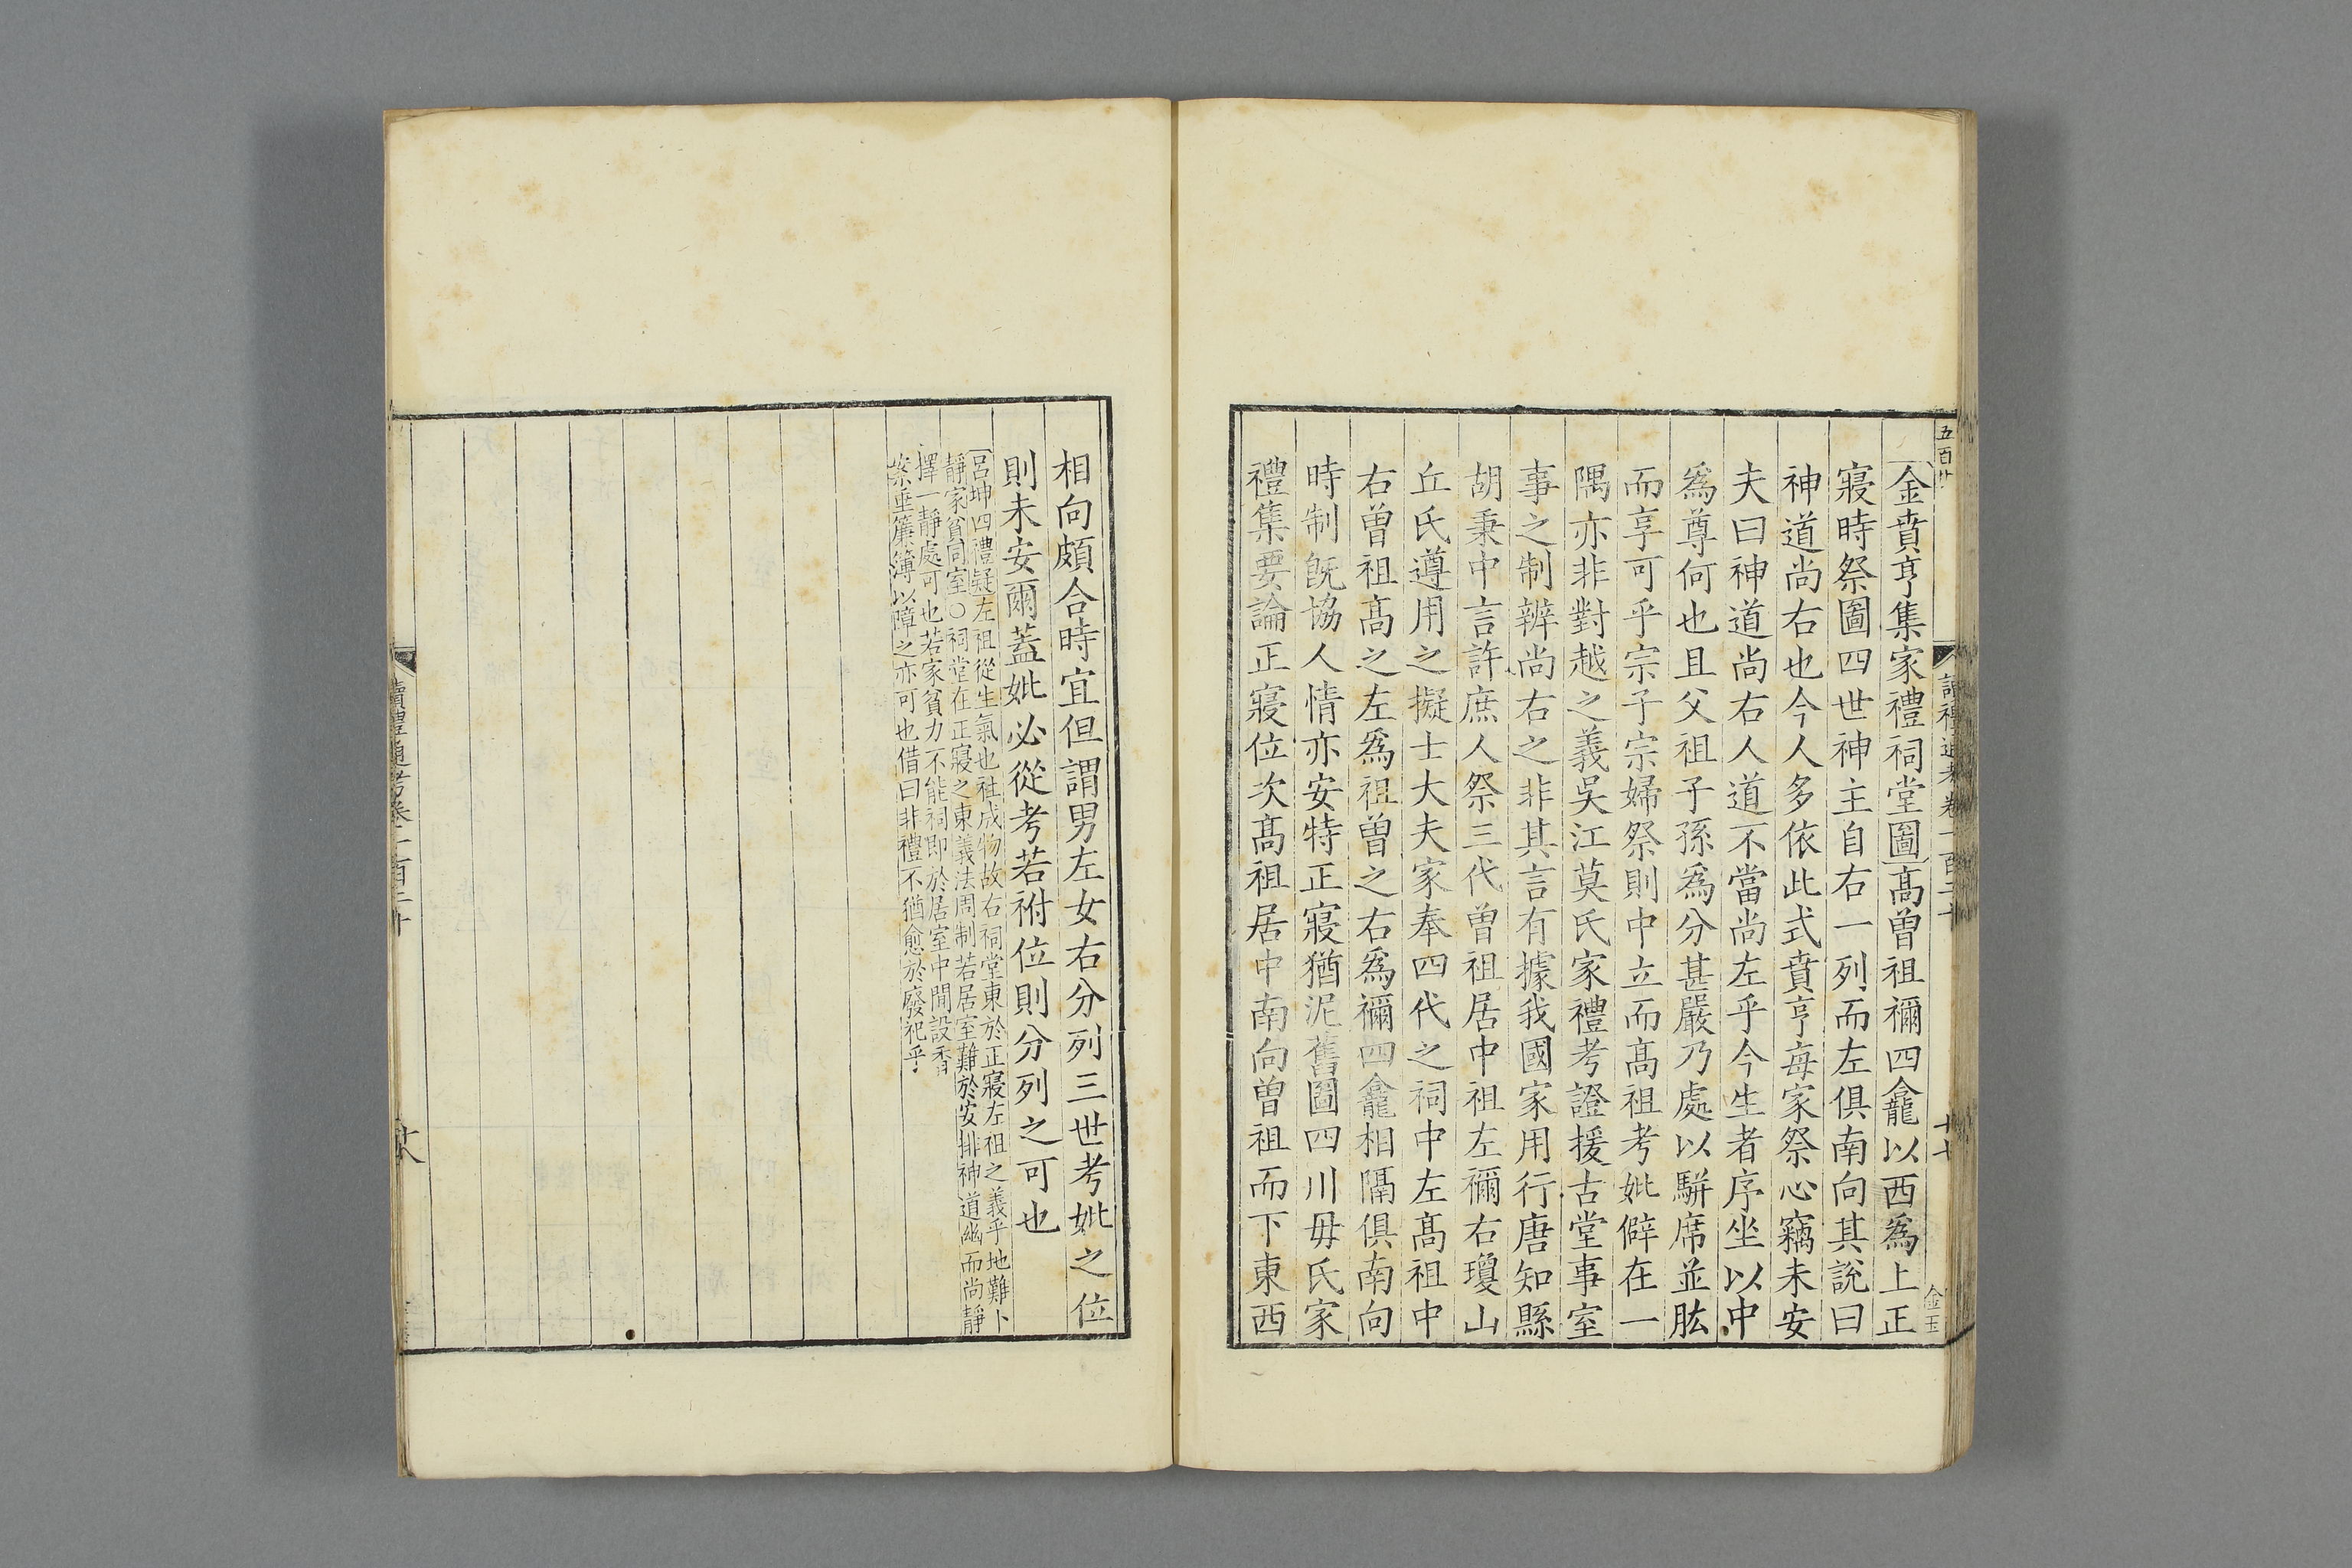 五百廿
讀禮通考卷一百二十
十七
金玉
金賁亨集家禮祠堂圖高曾祖禰四龕以西爲上正
寢時祭圖四世神主自右一列而左俱南向其說曰
神道尚右也今人多依此式賁亨每家祭心竊未安
夫曰神道尚右人道不當尚左乎今生者序坐以中
爲尊何也且父祖子孫爲分甚嚴乃處以駢席並肱
而享可乎宗子宗婦祭則中立而高祖考妣僻在一
隅亦非對越之義吳江莫氏家禮考證援古堂事室
事之制辨尚右之非其言有據我國家用行唐知縣
胡秉中言許庶人祭三代曾祖居中祖左禰右瓊山
丘氏遵用之擬士大夫家奉四代之祠中左高祖中
右曾祖高之左爲祖曾之右爲禰四龕相隔俱南向
時制旣協人情亦安特正寢猶泥舊圖四川毋氏家
禮集要論正寢位次高祖居中南向曾祖而下東西
相向頗合時宜但謂男左女右分列三世考妣之位
則未安爾蓋妣必從考若祔位則分列之可也
呂坤四禮疑左祖從生氣也社成物故右祠堂東於正寢左祖之義乎地難卜
靜家貧同室○祠堂在正寢之東義法周制若居室難於安排神道幽而尚靜
擇一靜處可也若家貧力不能祠即於居室中閒設香
桌垂簾薄以障之亦可也借曰非禮不猶愈於廢祀乎
讀禮通考卷一百二十